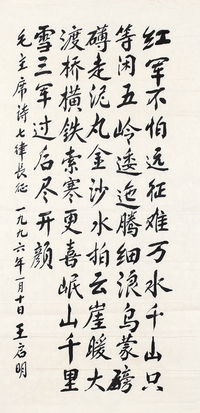 红军不怕远征难万水千山只
等闲五岭逶迤腾细浪乌蒙磅
礴走泥丸金沙水拍云崖暖大
渡桥横铁索寒更喜岷山千里
雪三军过后尽开颜
毛主席诗七律长征 一九九六年一月十日 王启明